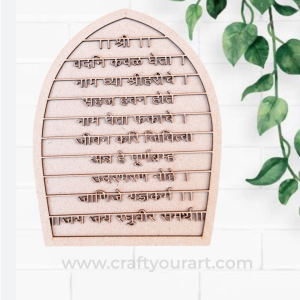 ।। श्री ।।
वदनि कवळ घेता ।
नाम घ्या श्रीहरीचे ।
सहज हवन होते
नाम घेता फुकाचे ।
जीवन करि जिवित्वा
अन्न हे पूर्णब्रम्ह
उदरभरण नोहे ।
जाणिजे यज्ञकर्म ।।
।।जय जय रघुवीर समर्थ।।
www.craftyourart.com